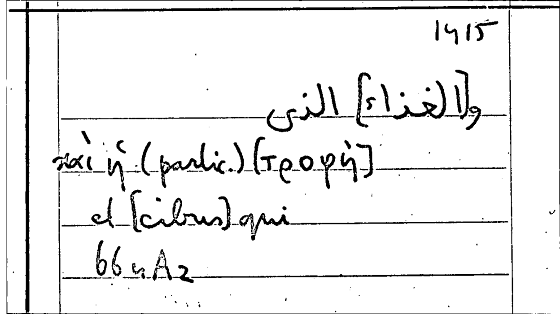 1415
و[الغذاء] الذى
καὶ ἡ (partic.) [τροφὴ]
et [cibus] qui